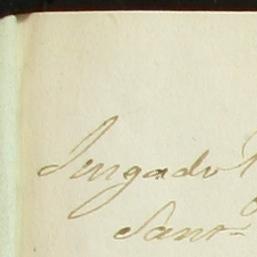 Jusgado
Sant-